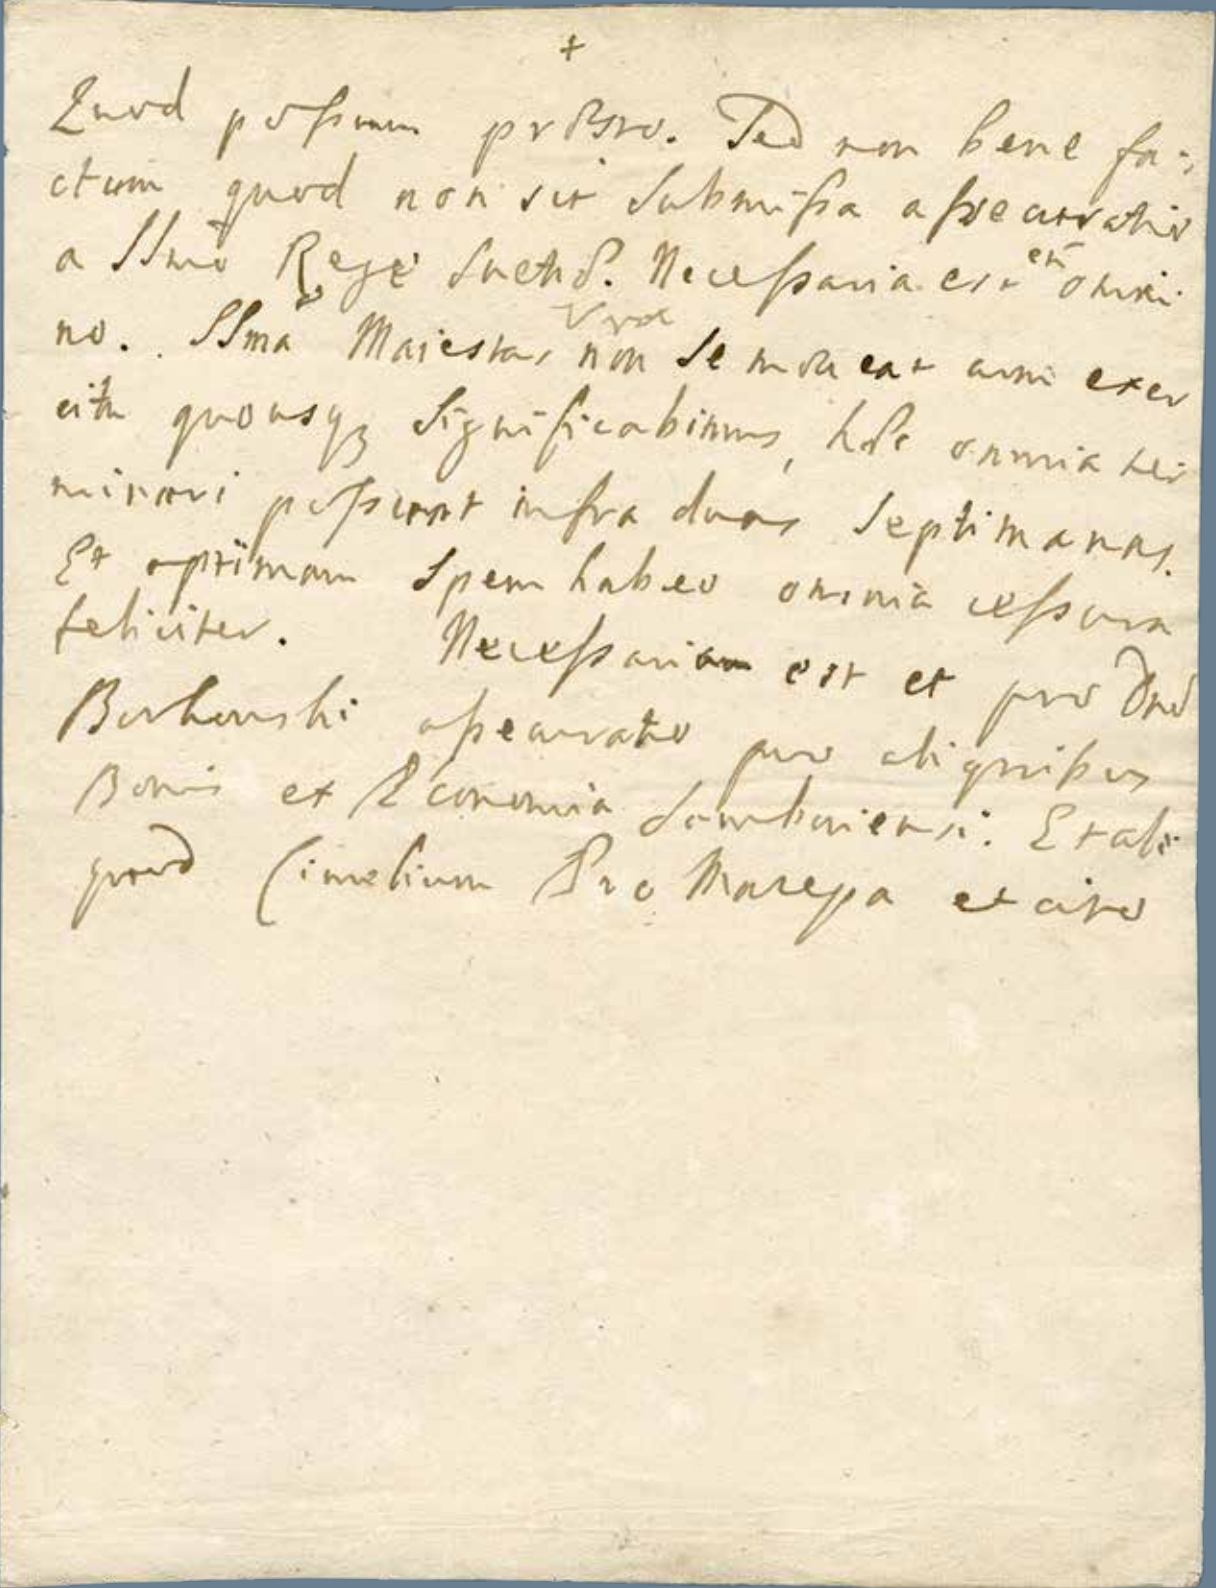 +
Quod possum praesto. Sed non bene fa-
ctum quod non sit submissa assecuratio
a SSmo Rege Suetiae. Necessaria est en omni
no. SSma Maiestas Vra non se moueat cum exer
citu quousq3 significabimus, haec omnia ter
minari possunt infra duas septimanas.
Et optimam spem habeo omnia cessura
feliciter. Necessariam est et pro Dno
Borkowski assecuratio pro aliquibus
Bonis et Economia Samboriensi. Et ali
quod Cimelium pro Mazepa et cito